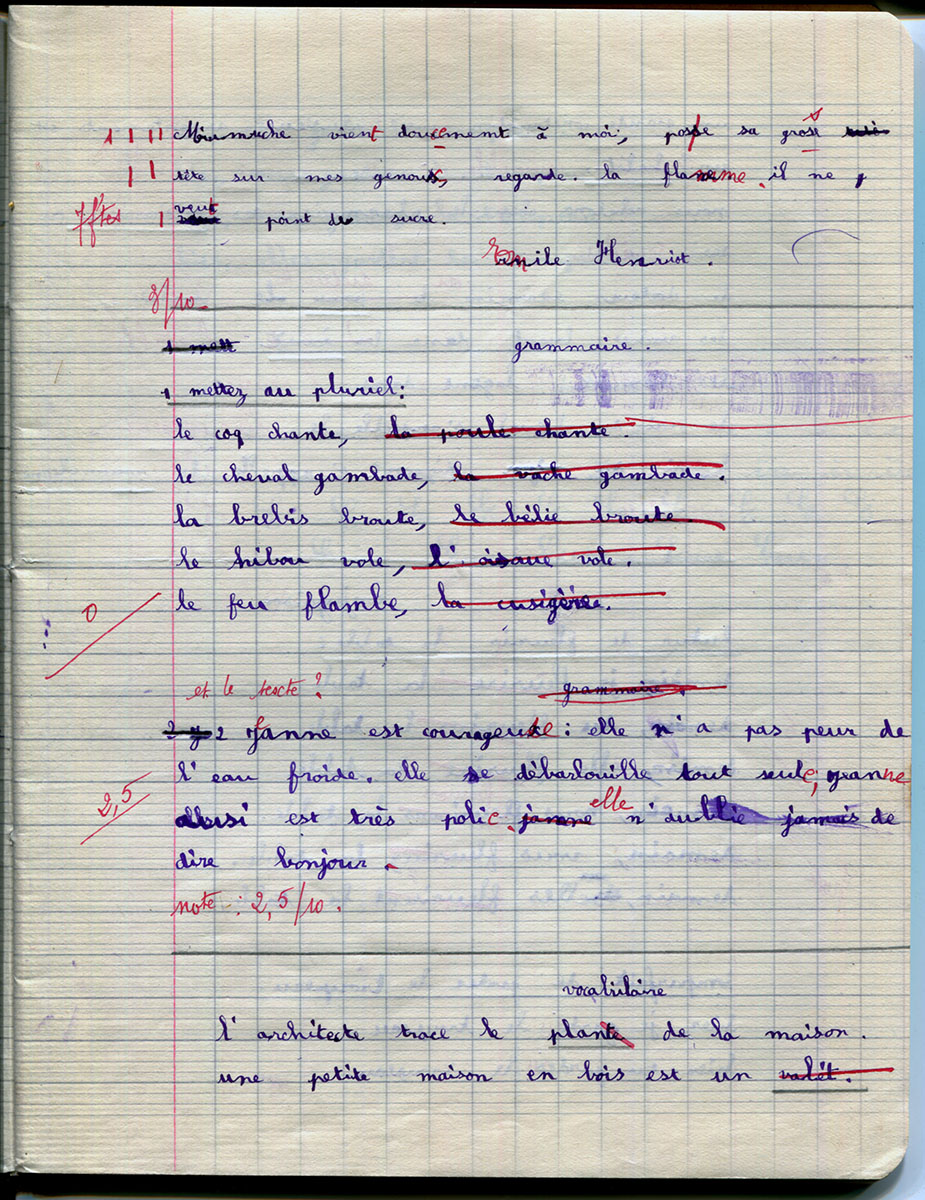 Minmuche vient doucement à moi, pose sa grosse
tête sur mes genoux, regarde. la flamme. il ne
7 ftes veut point de sucre.
Emile Henriot.
3/10
1 mett grammaire.
1 mettez au pluriel:
le coq chante, la poule chante.
le cheval gambade, la vache gambade.
la brebis broute, le bélie broute.
le hibou vole, l'oisaue vole.
0 le feu flambe, la cusigère.
et le texte? grammaire.
2 Janne est courageuse: elle n'a pas peur de
l'eau froide. elle se débarlouille tout seule, granne
2,5 aussi est très polie. janne elle n'oublie jamais de
dire bonjour.
note: 2,5/10.
vocabulaire
l'architecte trace le plante de la maison.
une petite maison en bois est un valét.